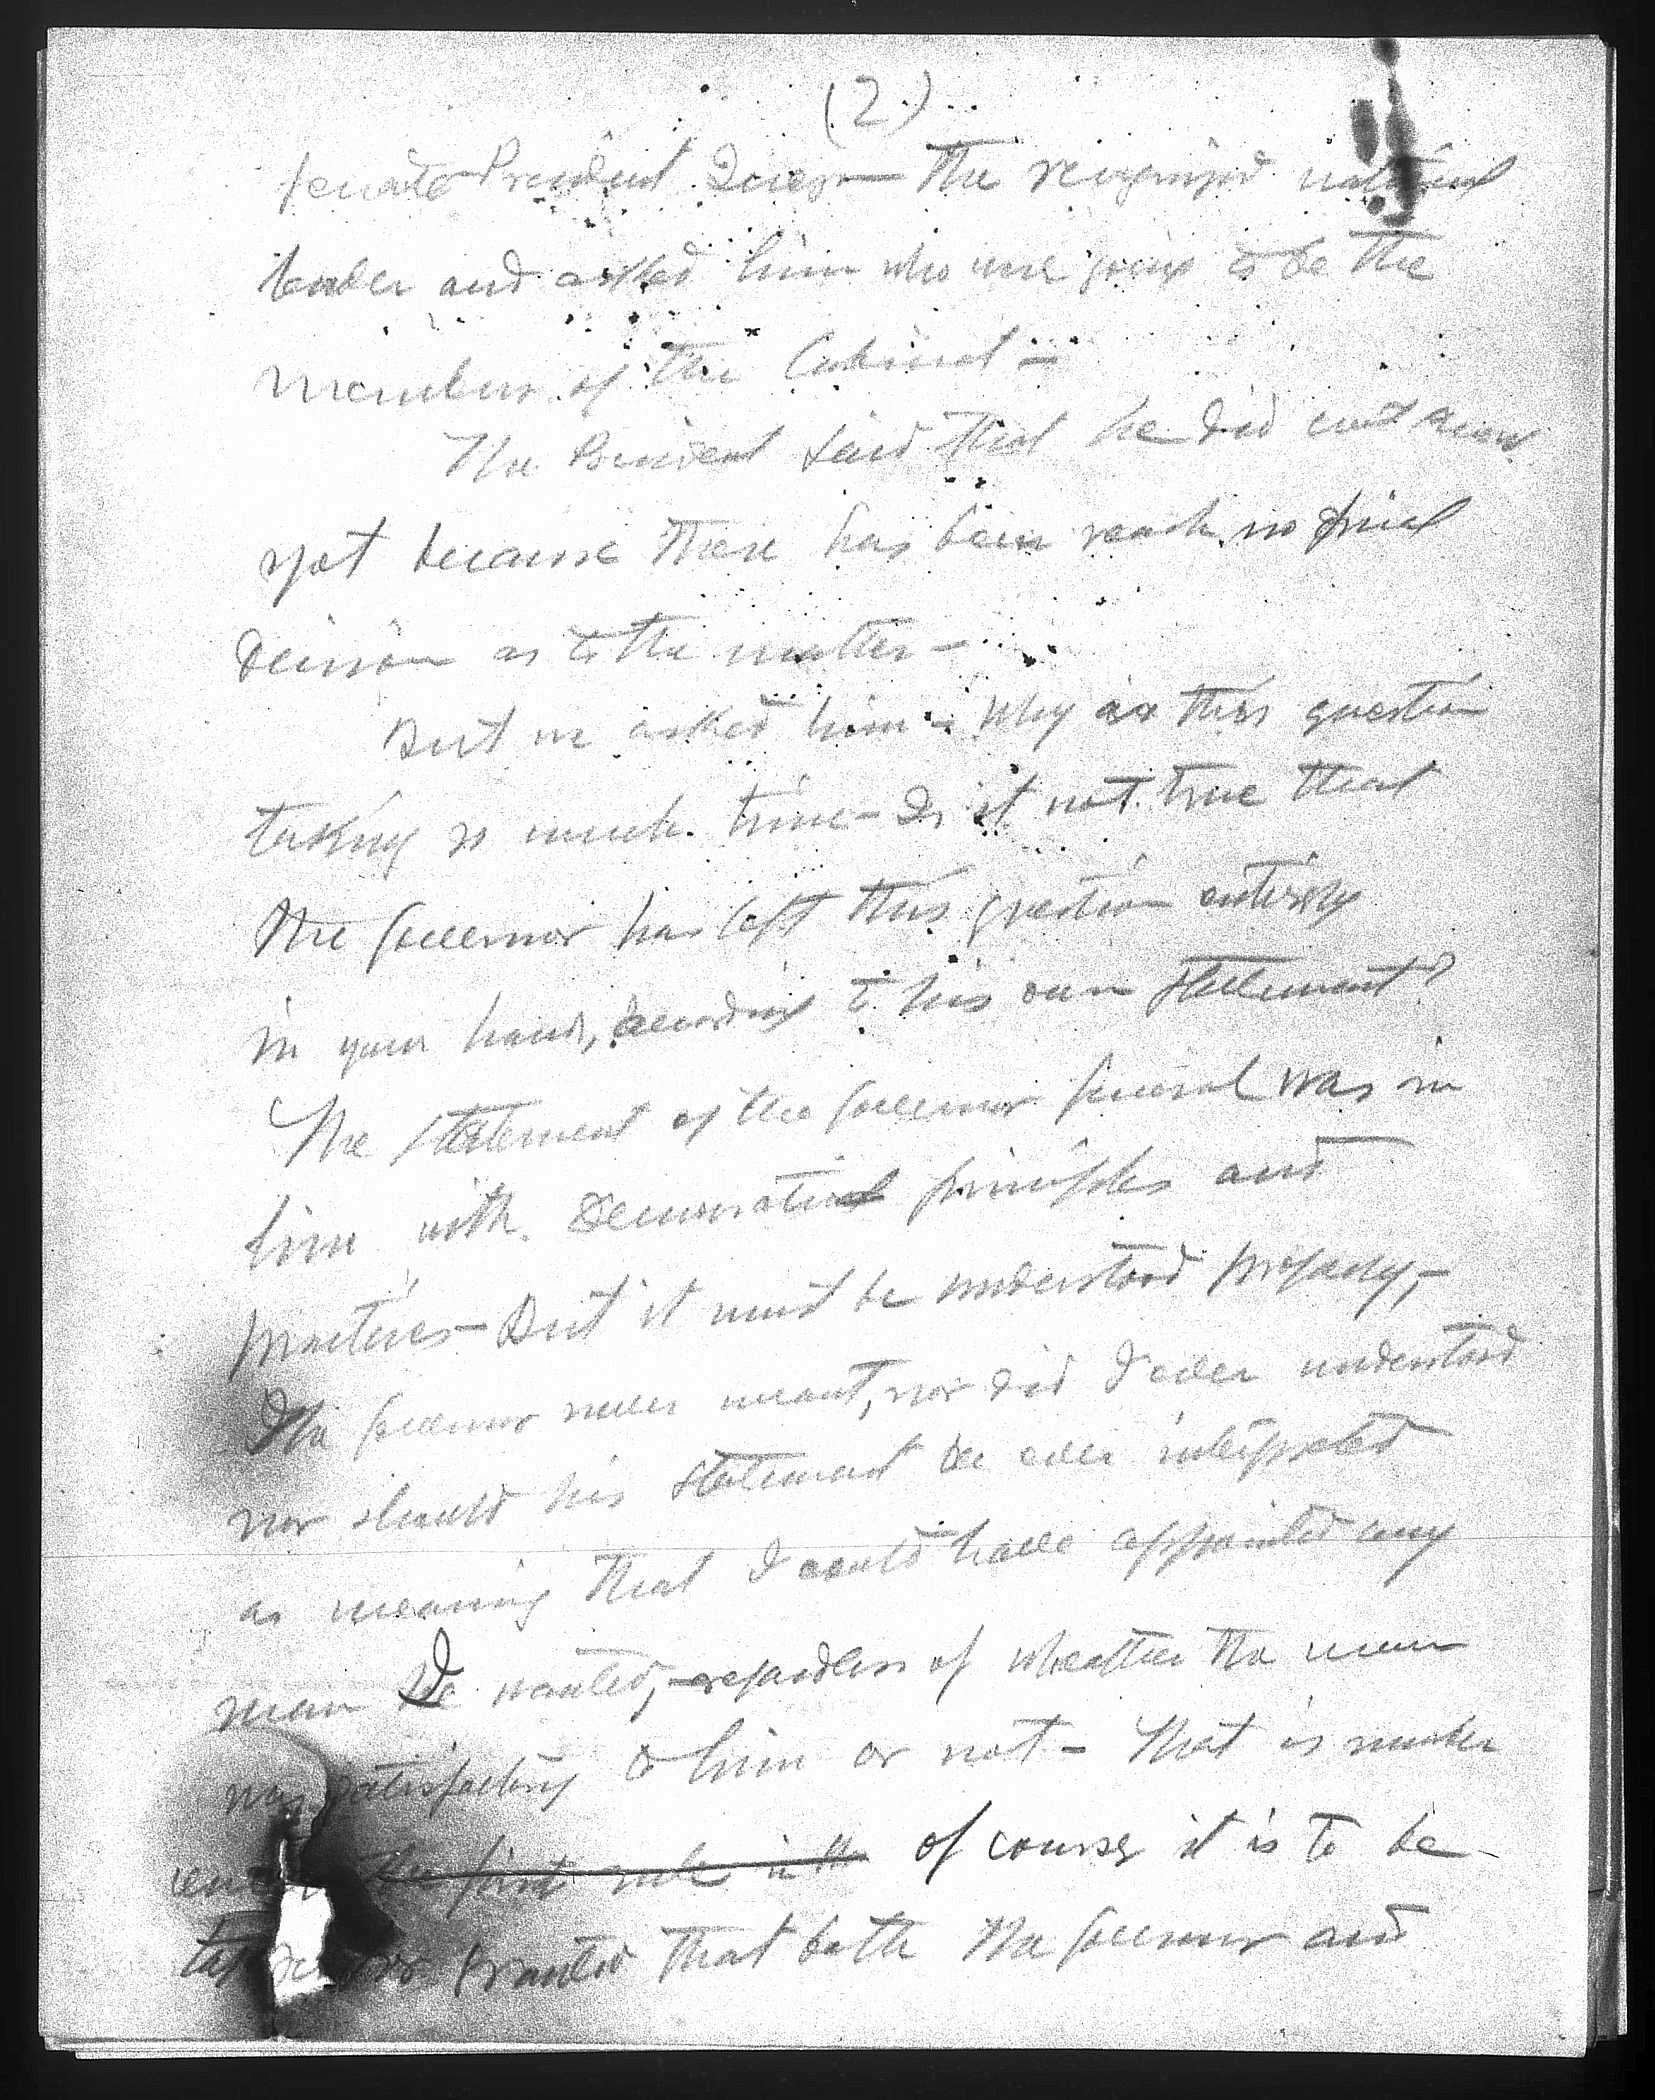 (2)
Senate President Quezon — the recognized national
leader and asked him who were going to be the
members of the Cabinet —
The President said that he did not know
yet because there has been reach no final
decision as to the matter —
But we asked him — Why is this question
taking so much time — Is it not true that
the Governor has left this question entirely
in your hands, according to his own statement?
The statement of the Governor General was in
line with Democratic principles and
practices — But it must be understood properly, —
The Governor never meant, nor did I ever understand
nor should his statement be ever interpreted
as meaning that I could have appointed any
man I wanted, regardless of wheather the man
was satisfactory to him or not — That is
the first rule in the of course it is to be
for granted that both the Governor and